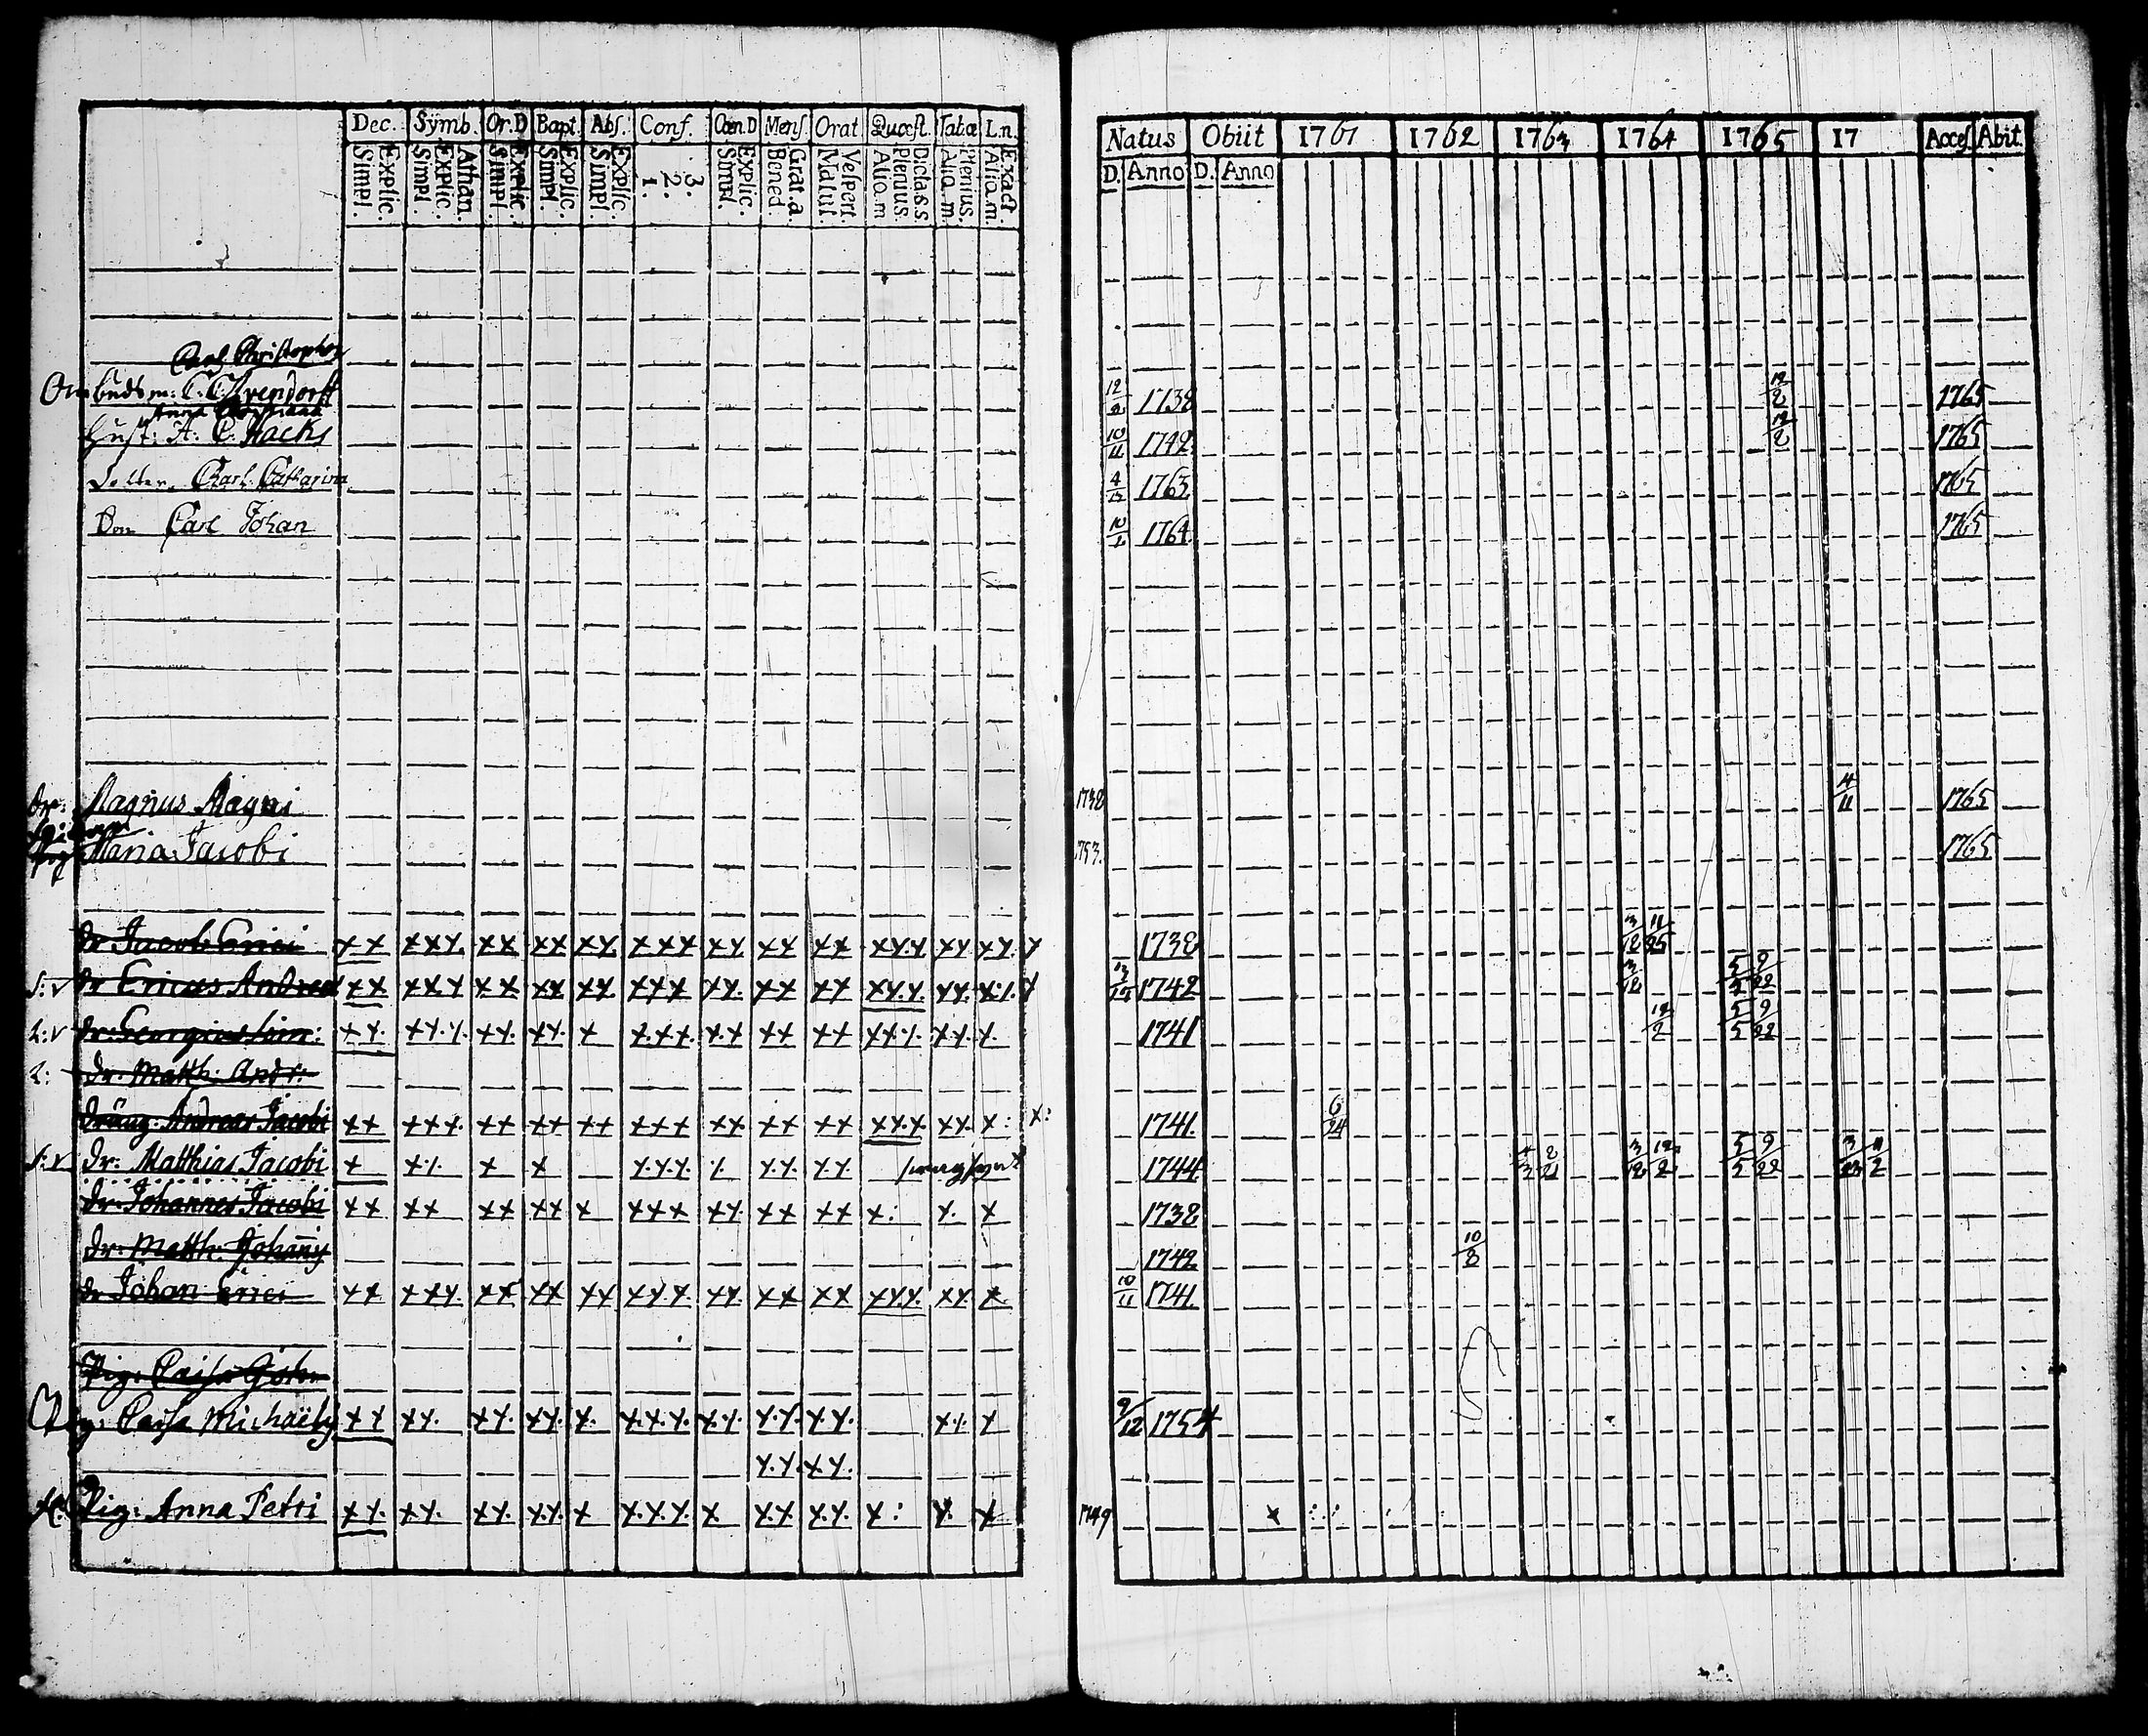 Dec. Symb. Or. D Bapt. Abs. Conf. Cœn. D Mens. Orat. Quæst. Tab. œ L. n.
Simpl. Explic. Simpl. Explic. Athan. Simpl. Explic. Simpl. Explic. Simpl. Explic. 1. 2. 3. Simpl. Explic. Bened. Grat. a Matut. Vespert. Aliq. m Plenius. Dicta s. s Aliq. m. Plenius. Aliq. m. Exact.
Carl Christopher
Ombudsm: C. C.
Anna
Hust: A: C. Hacks
Dotter Charl. Catharina
Son Carl Johan
dr: Magnus Magni
Maria Jacobi
dr Jacob Erici x x x x x x x x x x x x x x x x x x x x x x x x x x x x x
S: v dr Ericus Andreæ x x x x x x x x x x x x x x x x x x x x x x x x x x x x
L: v dr: Georgius Sim: x x. x x x. x x. x x. x x. x. x. x. x x x x x x x x. x. x. x. x.
L: dr: Matth: Andr:
dräng: Andreas Jacobi x x x x x. x x x x x x x x x x x x x x x x x x. x x x. x: x:
S: v dr: Matthias Jacobi x x x. x x x. x. x. x. x. x. x. x.
dr: Johannes Jacobi x x x x x x x x x x x x x x. x x x x x: x. x
dr: Matth: Johannis
dr Johan Erici x x x x x. x x x x x x x x x. x x. x x x x x x x. x x. x
Pig: Caisa
Pig: Caisa Michaëls x x x x. x x. x x. x. x. x. x. x. x. x. x. x. x. x. x. x
x. x. x x.
Pig: Anna Petri x x. x x. x x. x. x. x x. x. x. x x. x. x. x. x: x. x
Natus Obiit 1761 1762 1763 1764 1765 17 Access. Abit.
D. Anno D. Anno
1738 12/2 1765
10/11 1742 12/2 1765
1763 1765
1764 1765
1738 4/11 1765
1753. 1765
1738 3/12 11/25
1742 3/12 5/5 9/22
1741 12/2 5/5 9/22
1741. 6/24
1744 3/12 12/2 5/5 9/22 11/2
1738
1742 10/8
10/11 1741
9/12 1754
1749 x